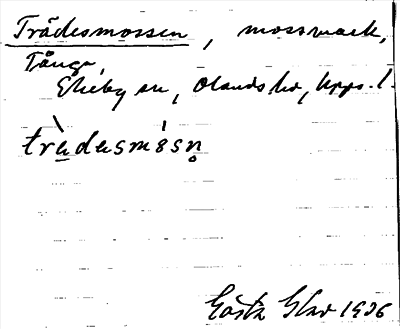 Trådesmossen, mossmark,
Tånga,
Ekeby sn, Olands hd, Upps. l.
trädasmå̀sn̥
Gösta 1906